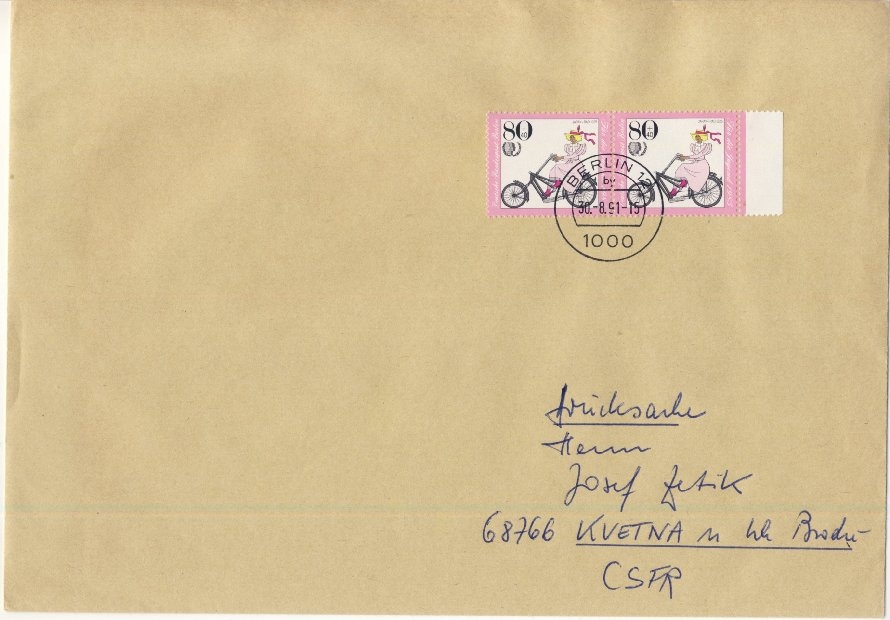 80 80
+40 +40
BERLIN 12
by
30.-8.91-15
1000
Drucksache
Herrn
Josef Zetik
68766 KVETNA u Uh Brodu
CSFR